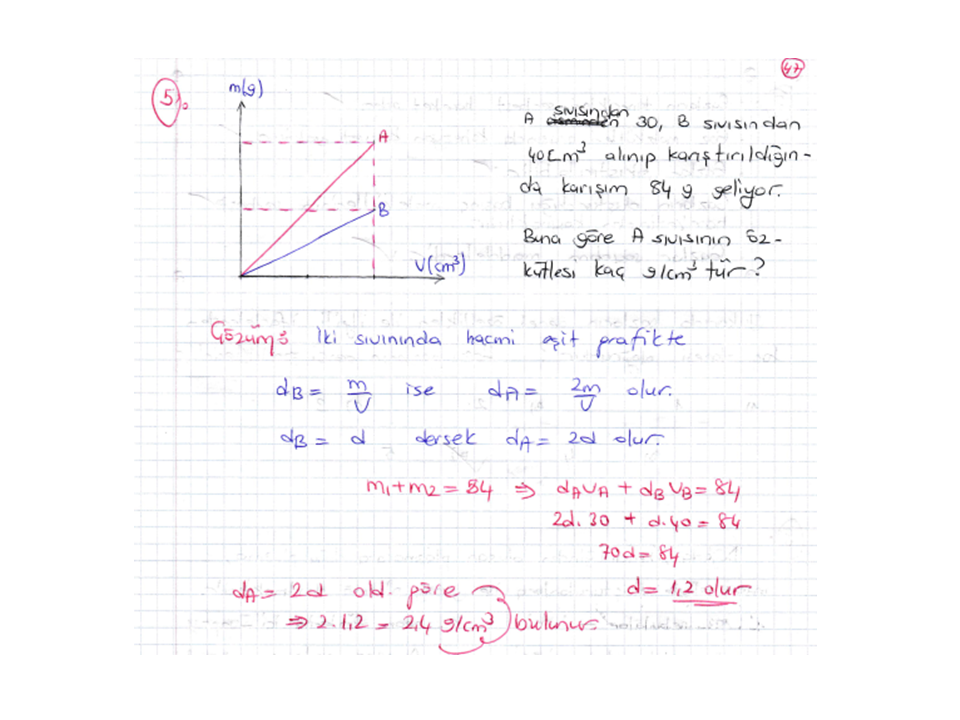 47
5).
m(g)
A
B
V(cm³)
A sıvısından 30, B sıvısından
40cm³ alınıp karıştırıldığın-
da karışım 84 g geliyor.
Buna göre A sıvısının öz-
kütlesi kaç g/cm³ tür?
Çözüm: İki sıvınında hacmi eşit grafikte
dB = m/V ise dA = 2m/V olur.
dB = d dersek dA = 2d olur.
m₁+m₂ = 84 ⇒ dAVA + dBVB = 84
2d.30 + d.40 = 84
70d = 84
d = 1,2 olur
dA = 2d old. göre
⇒ 2.1,2 = 2,4 g/cm³ bulunur.